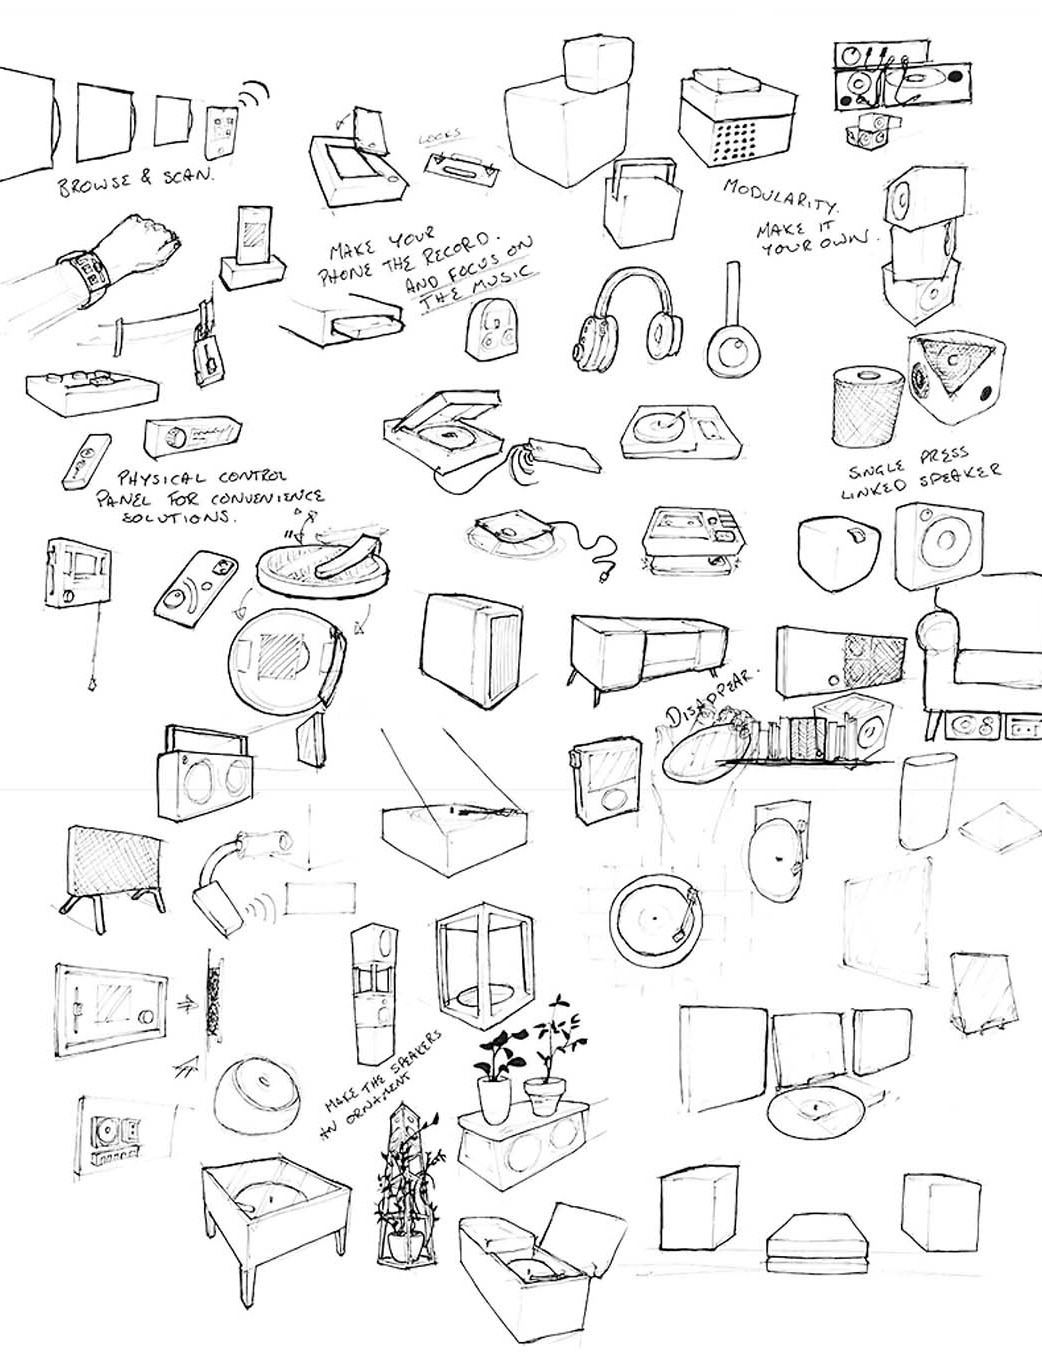 BROWSE & SCAN.
LOCKS
MAKE YOUR
PHONE THE RECORD.
AND FOCUS ON
THE MUSIC
MODULARITY.
MAKE IT
YOUR OWN.
PHYSICAL CONTROL
PANEL FOR CONVENIENCE
SOLUTIONS.
SINGLE PRESS
LINKED SPEAKER
DISAPPEAR.
MAKE THE SPEAKERS
AN ORNAMENT